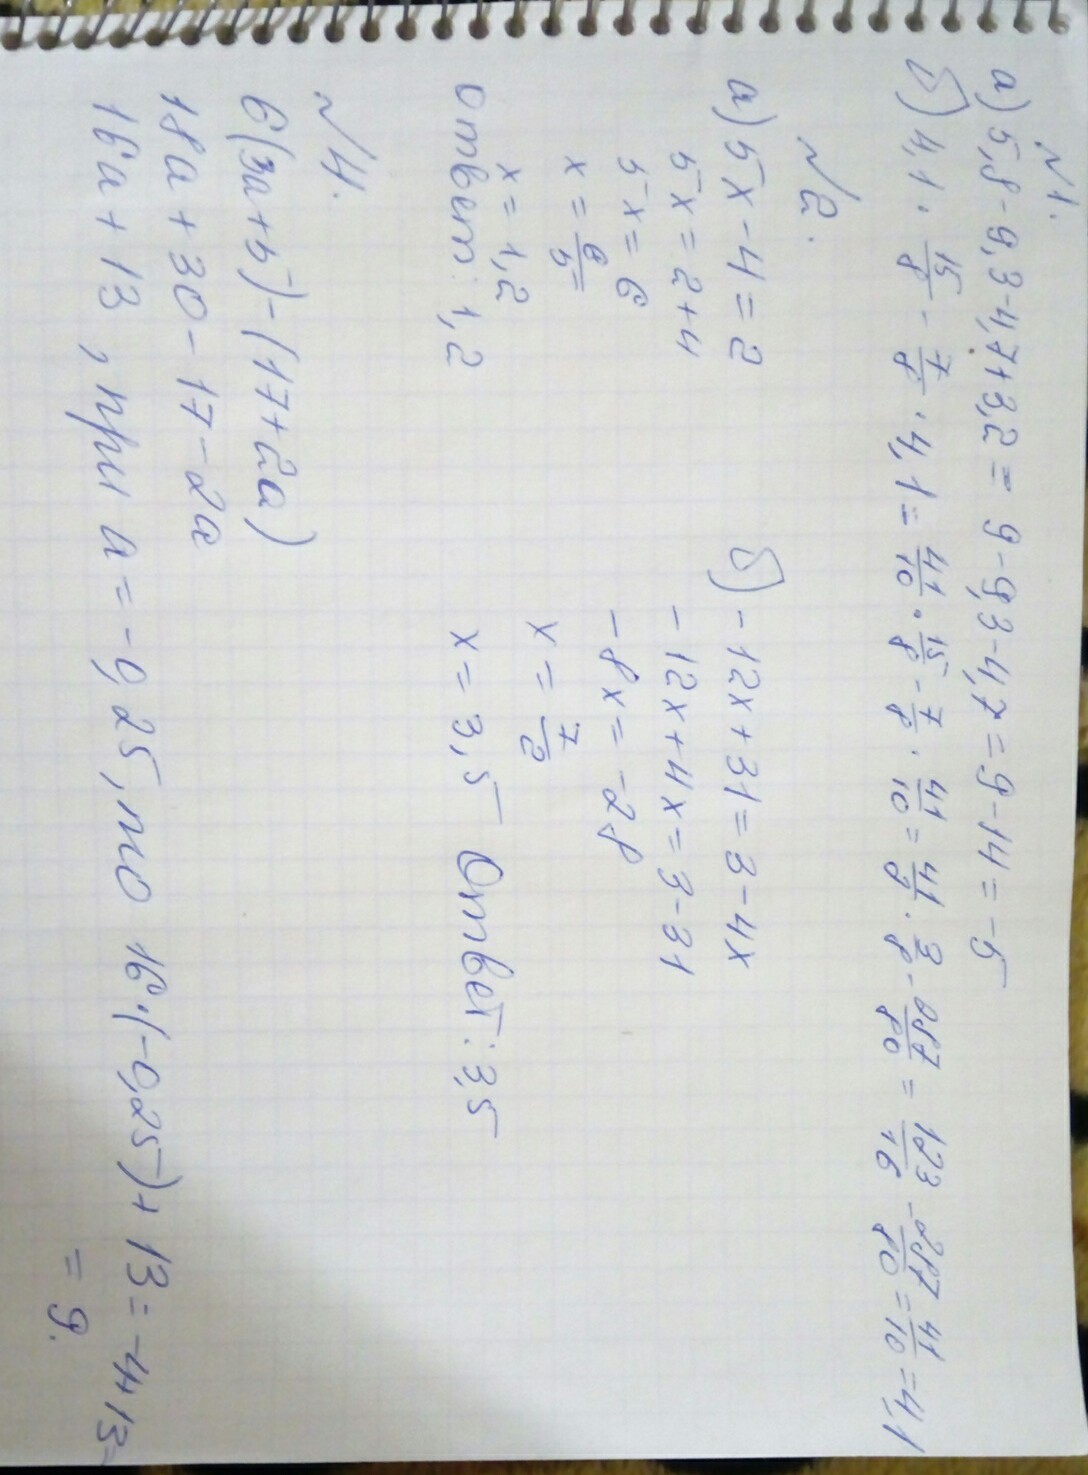 №1.
а) 5,8-9,3-4,7+3,2= 9-9,3-4,7=9-14=-5
б) 4,1·15/8-7/8·4,1=41/10·15/8-7/8·41/10=41/2·3/8-287/80=123/16-287/80=41/10=4,1
№2.
а) 5x-4=2
5x=2+4
5x=6
x=6/5
x=1,2
Ответ: 1,2
б) -12x+31=3-4x
-12x+4x=3-31
-8x=-28
x=7/2
x=3,5 Ответ: 3,5
№4.
6(3a+5)-(17+2a)
18a+30-17-2a
16a+13, при a=-0,25, то 16·(-0,25)+13=-4+13=
=9.